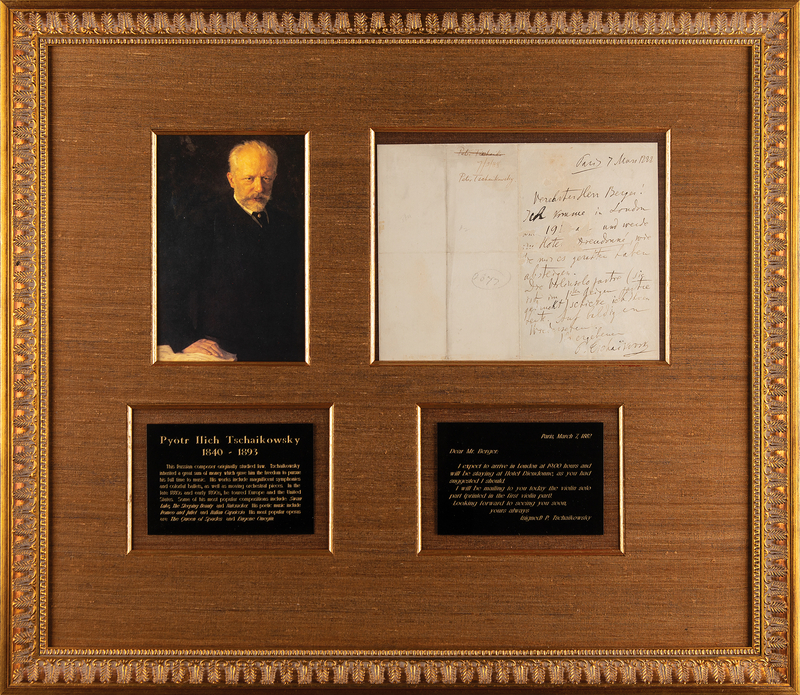 Peter Tschaikowsky
Paris 7 März 1888
Verehrtester Herr Berger!
Ich komme in London
19 und werde
Hotel Dieudonné, wie
mir es geraten haben
absteigen.
Die Violinsolo partie
P. Tschaikowsky
Pyotr Ilich Tschaikowsky
1840 - 1893
This Russian composer originally studied law. Tschaikowsky
inherited a great sum of money which gave him the freedom to pursue
his full time to music. His works include magnificent symphonies
and colorful ballets, as well as moving orchestral pieces. In the
late 1880s and early 1890s, he toured Europe and the United
States. Some of his most popular compositions include: Swan
Lake, The Sleeping Beauty and Nutcracker. His poetic music include
Romeo and Juliet and Italian Capriccio. His most popular operas
are The Queen of Spades and Eugene Onegin.
Paris, March 7, 1882
Dear Mr. Berger:
I expect to arrive in London at 19:00 hours and
will be staying at Hotel Dieudonne, as you had
suggested I should.
I will be mailing to you today the violin solo
part (printed in the first violin part)
Looking forward to seeing you soon,
yours always
(signed) P. Tschaikowsky